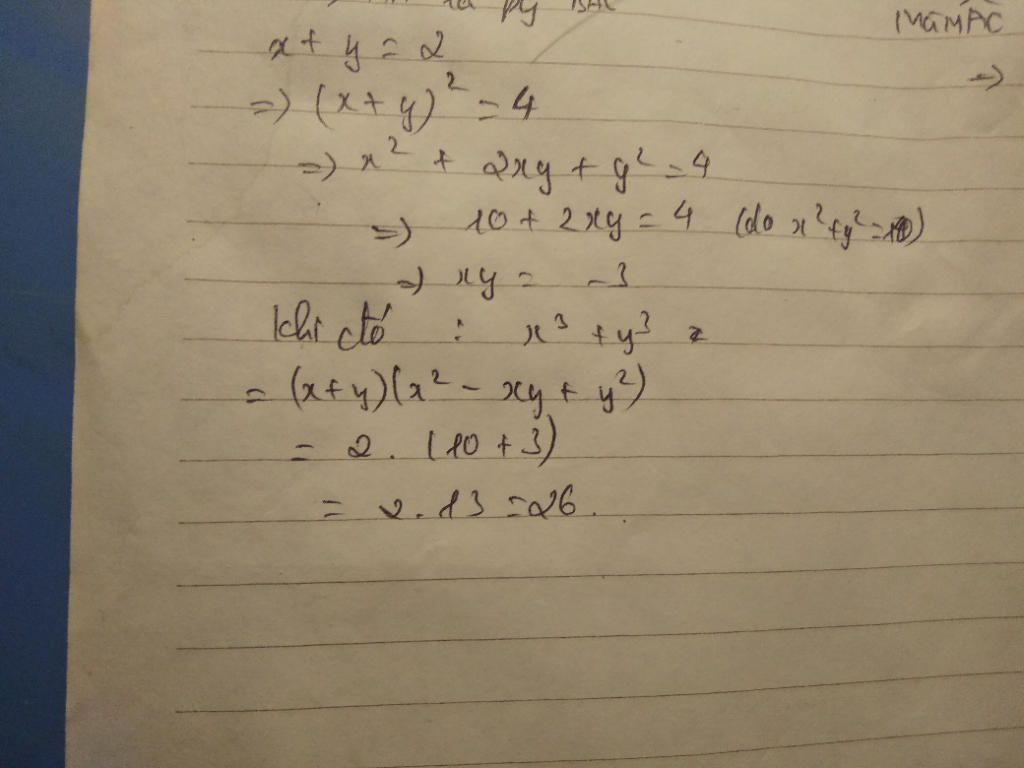 x + y = 2
=) (x + y)² = 4
=) x² + 2xy + y² = 4
=) 10 + 2xy = 4 (do x² + y² = 10)
=) xy = -3
Khi đó : x³ + y³
= (x + y)(x² - xy + y²)
= 2. (10 + 3)
= 2.13 = 26.
=)